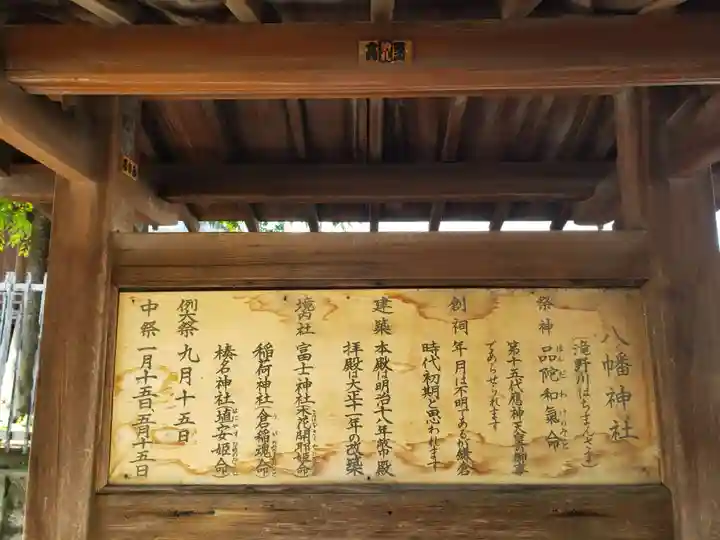 八幡神社
(滝野川はちまんさま)
祭神 品陀和氣命
第十五代應神天皇の御事
であらせられます
創祠 年月は不明であるが鎌倉
時代初期と思われます
建築 本殿は明治十八年 幣殿
拝殿は大正十一年の改築
境内社 富士神社(木花開耶姫命)
稲荷神社(倉稲魂命)
榛名神社(埴安姫命)
例大祭 九月十五日
中祭 一月十五日、五月十五日